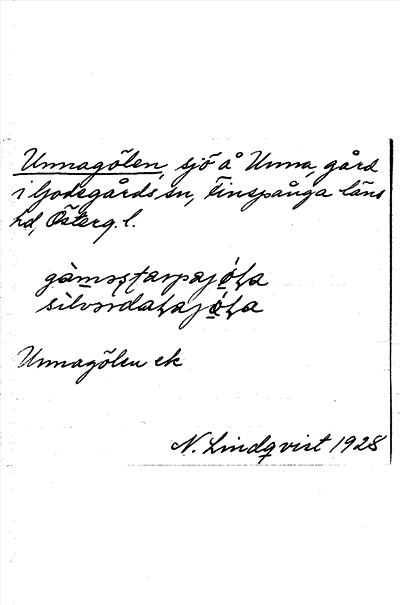 Unnagölen, sjö å Unna, gård
i Godegårds sn, Finspånga läns
hd, Österg. l.
gàməstarpajö́ɫa
silvərdaɫajö́ɫa
Unnagölen ek
N. Lindqvist 1928